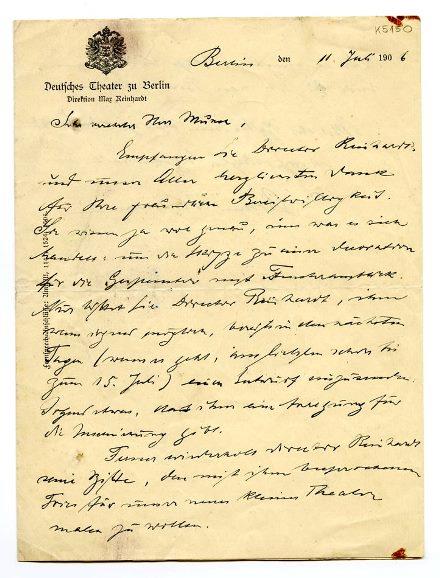 K5150
Deutsches Theater zu Berlin
Direktion Max Reinhardt
Berlin den 11 Juli 1906
Sehr verehrter Herr Munch,
Empfangen Sie Director Reinhardts
und unser Aller herzlichsten Dank
für Ihre freundliche Bereitwilligkeit.
Sie wissen ja wol genau, um was es sich
handelt: um die Skizze zu einer Decoration
für die Gespenster
Nun bittet Sie Director Reinhardt, ihm
wenn irgend möglich, in den nächsten
Tagen (wenn es geht, schon bis
zum 15. Juli) einen Entwurf einzusenden.
Irgend etwas, das ihm eine Anregung für
die Inscenierung gibt.
Ferner wiederholt Director Reinhardt
seine Bitte, den mit ihm besprochenen
Fries für unser neues kleines Theater
malen zu wollen.